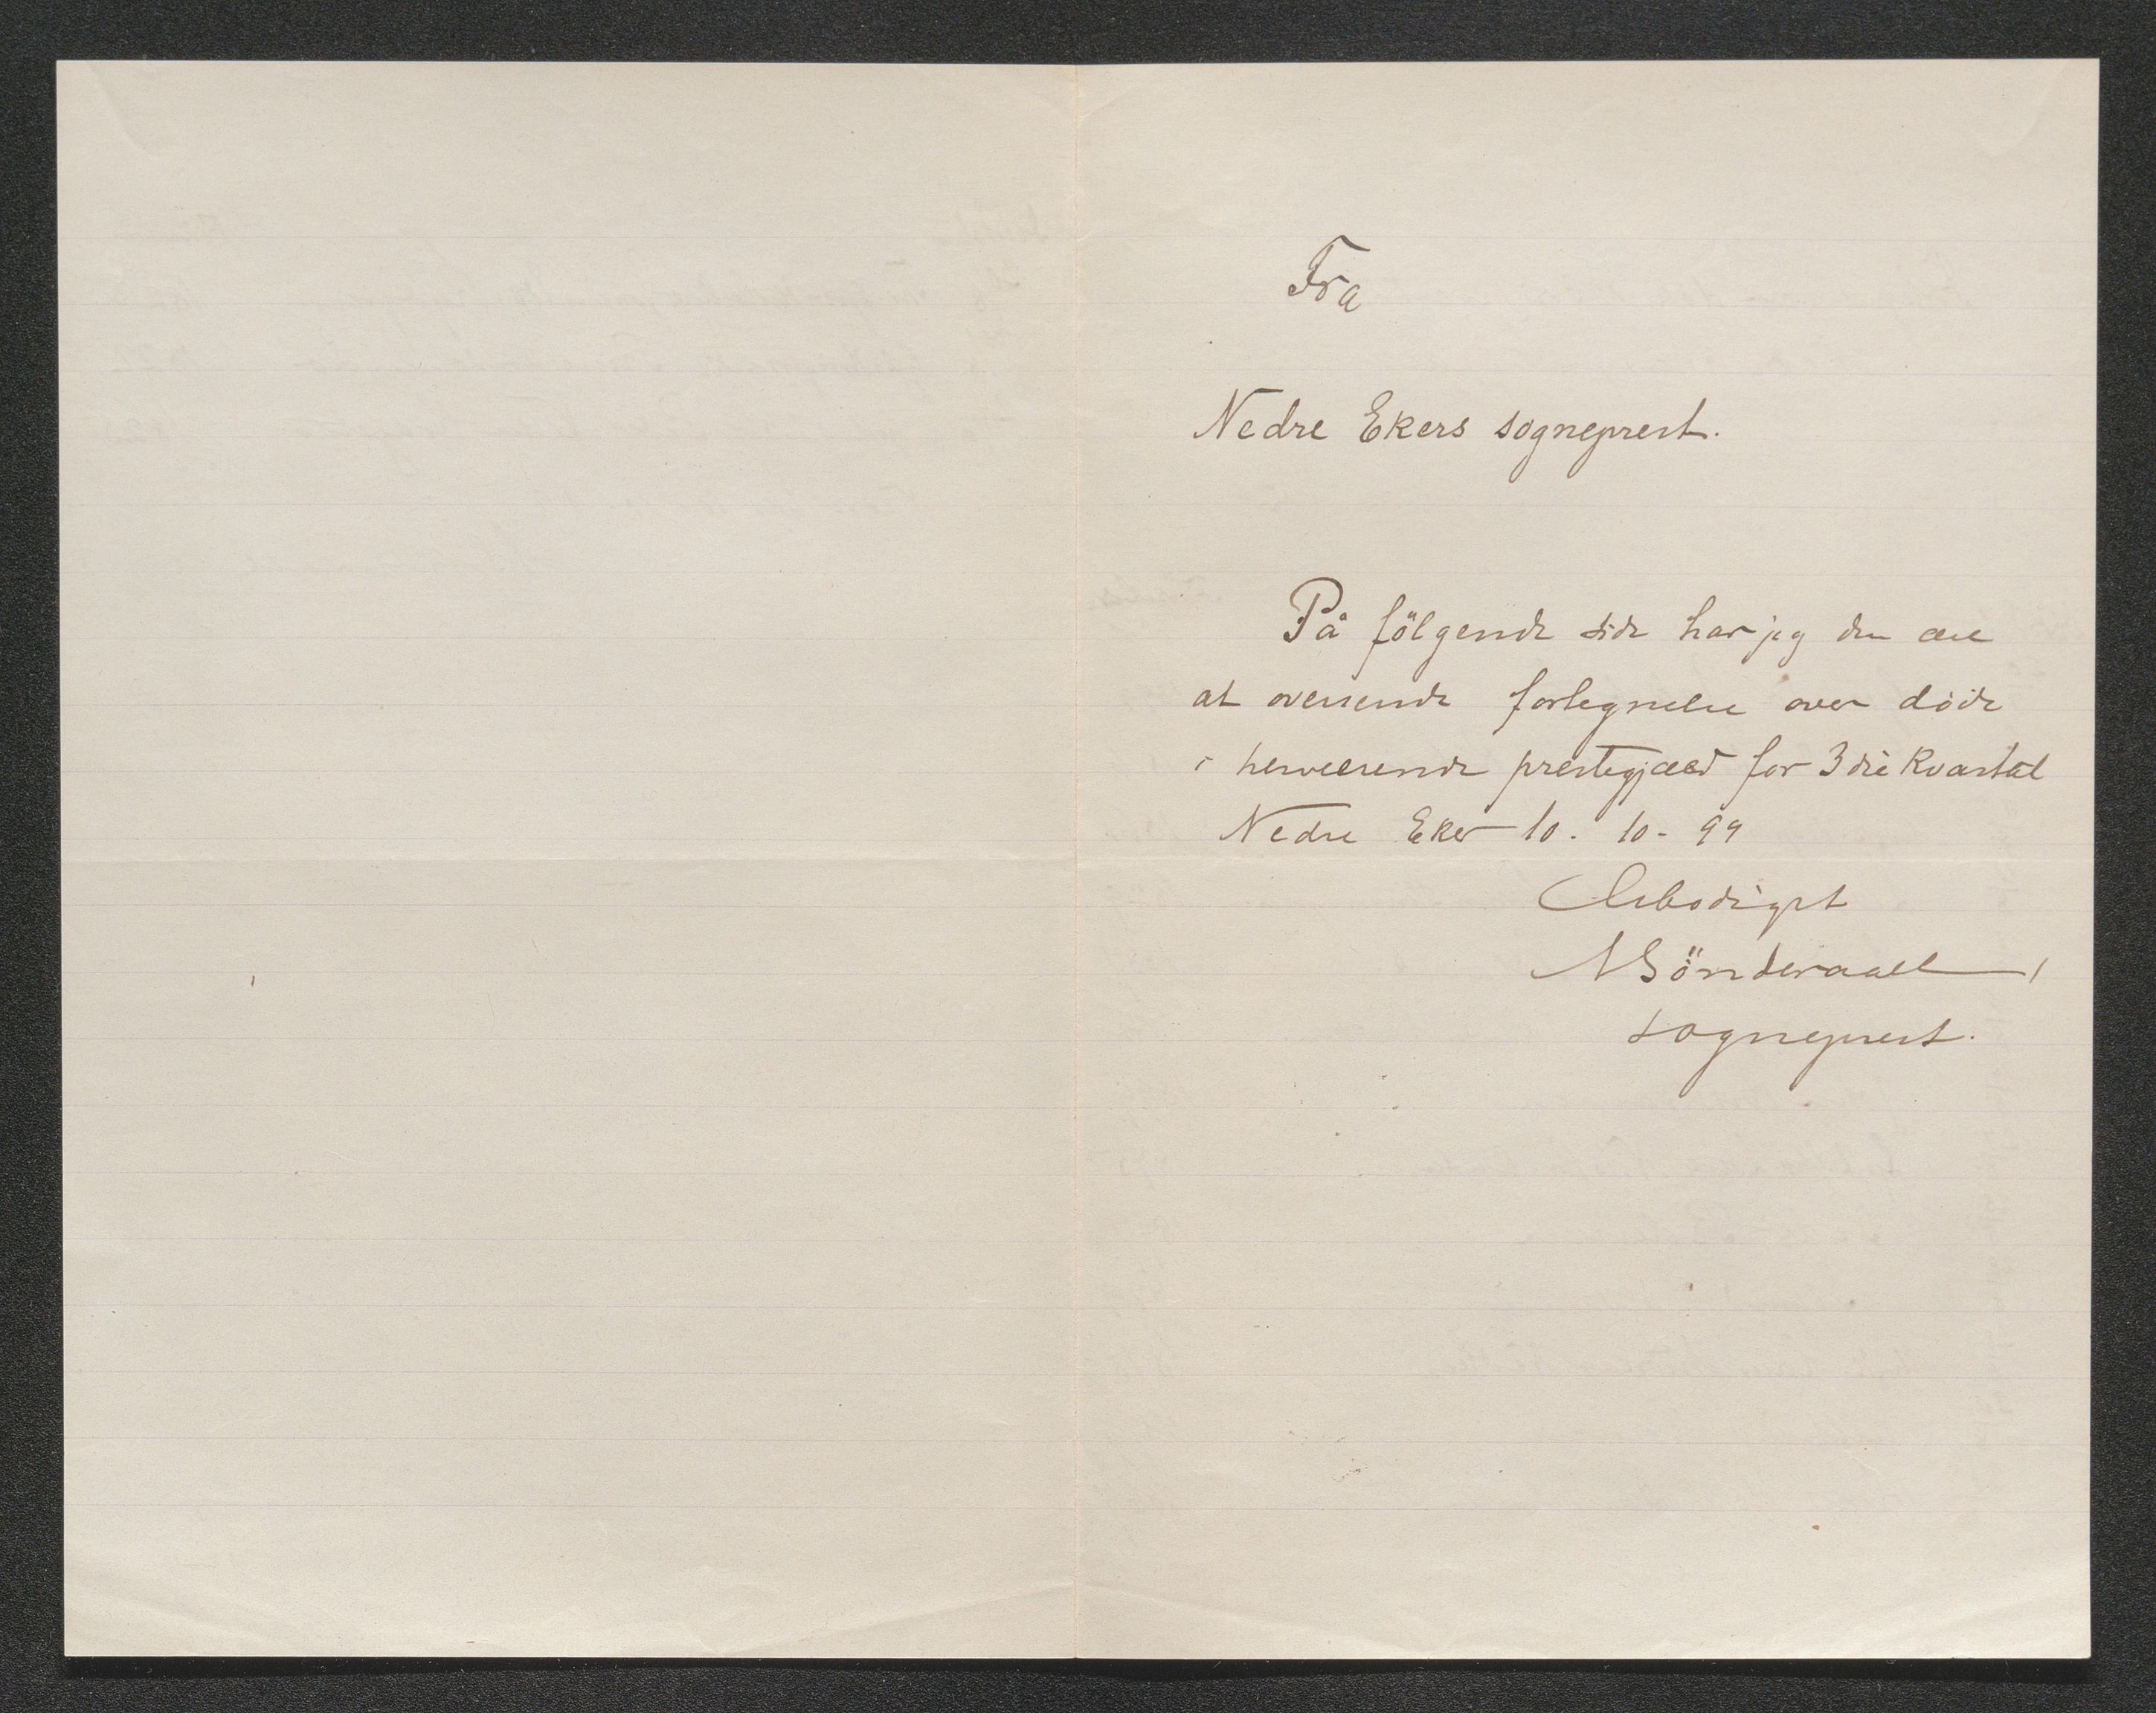 Fra
Nedre Ekers sogneprest.
På fölgende side har jeg den ære
at oversende fortegnelse over döde
i herværende prestegjæld for 3die kvartal
Nedre Eker 10. 10- 99
Ærbödigst
Sönderaall
sogneprest.